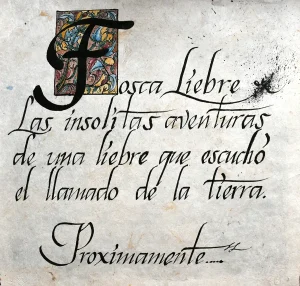 Fosca Liebre
Las insolitas aventuras
de una liebre que escudió
el llamado de la tierra.
Proximamente....